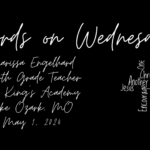 ords on Wednesda
arissa Engelhard
th Grade Teacher
King's Academy
ke Ozark, MO
May 1, 2024
One
Another
Encourage
Jesus